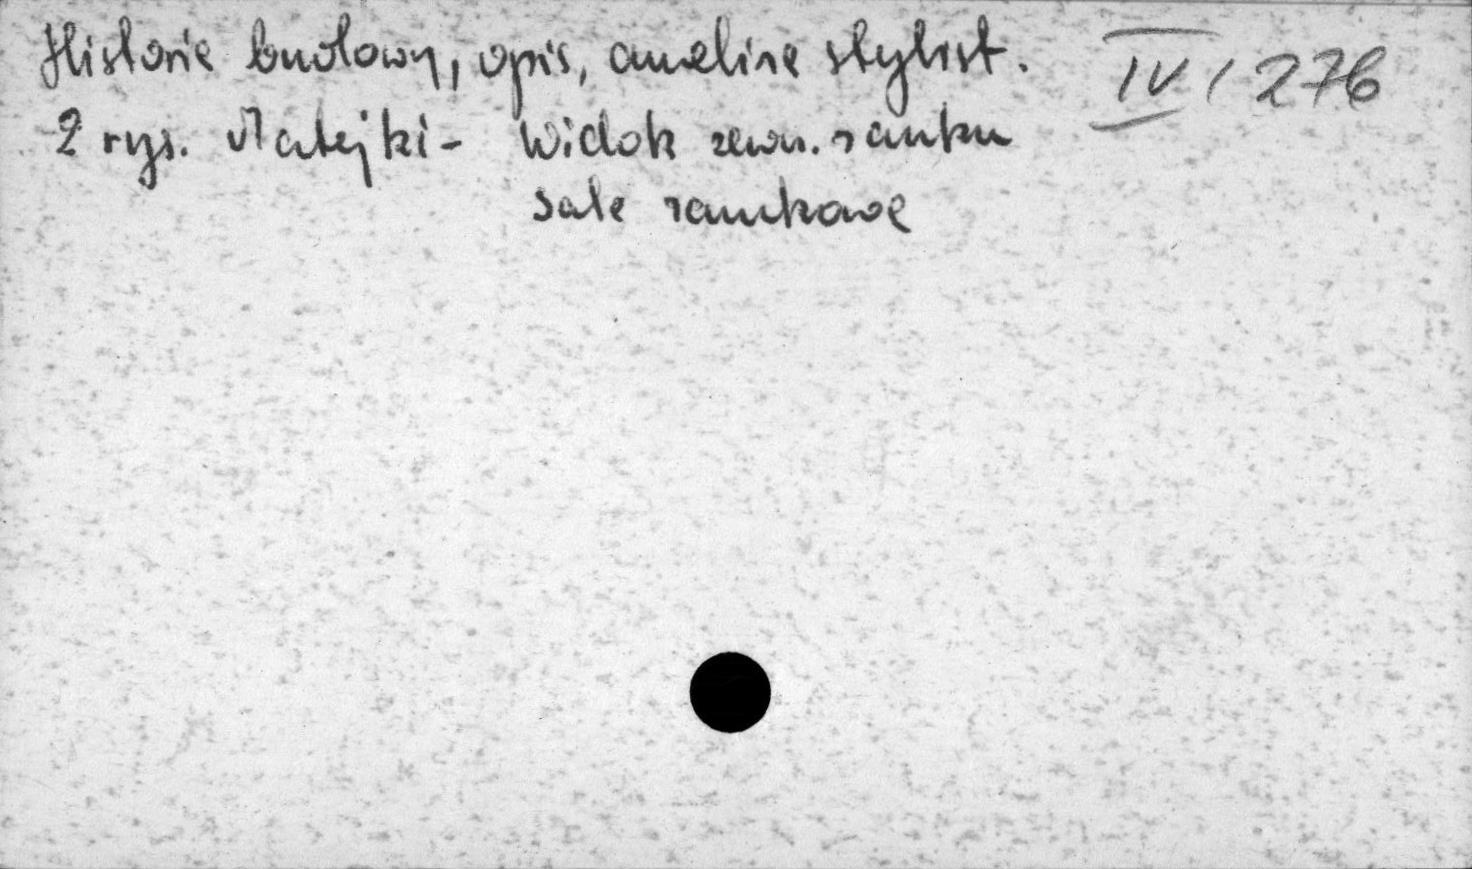 Historia budowy, opis, analiza stylist. IV / 276
2 rys. Matejki - Widok zewn. zamku
sala zamkowa